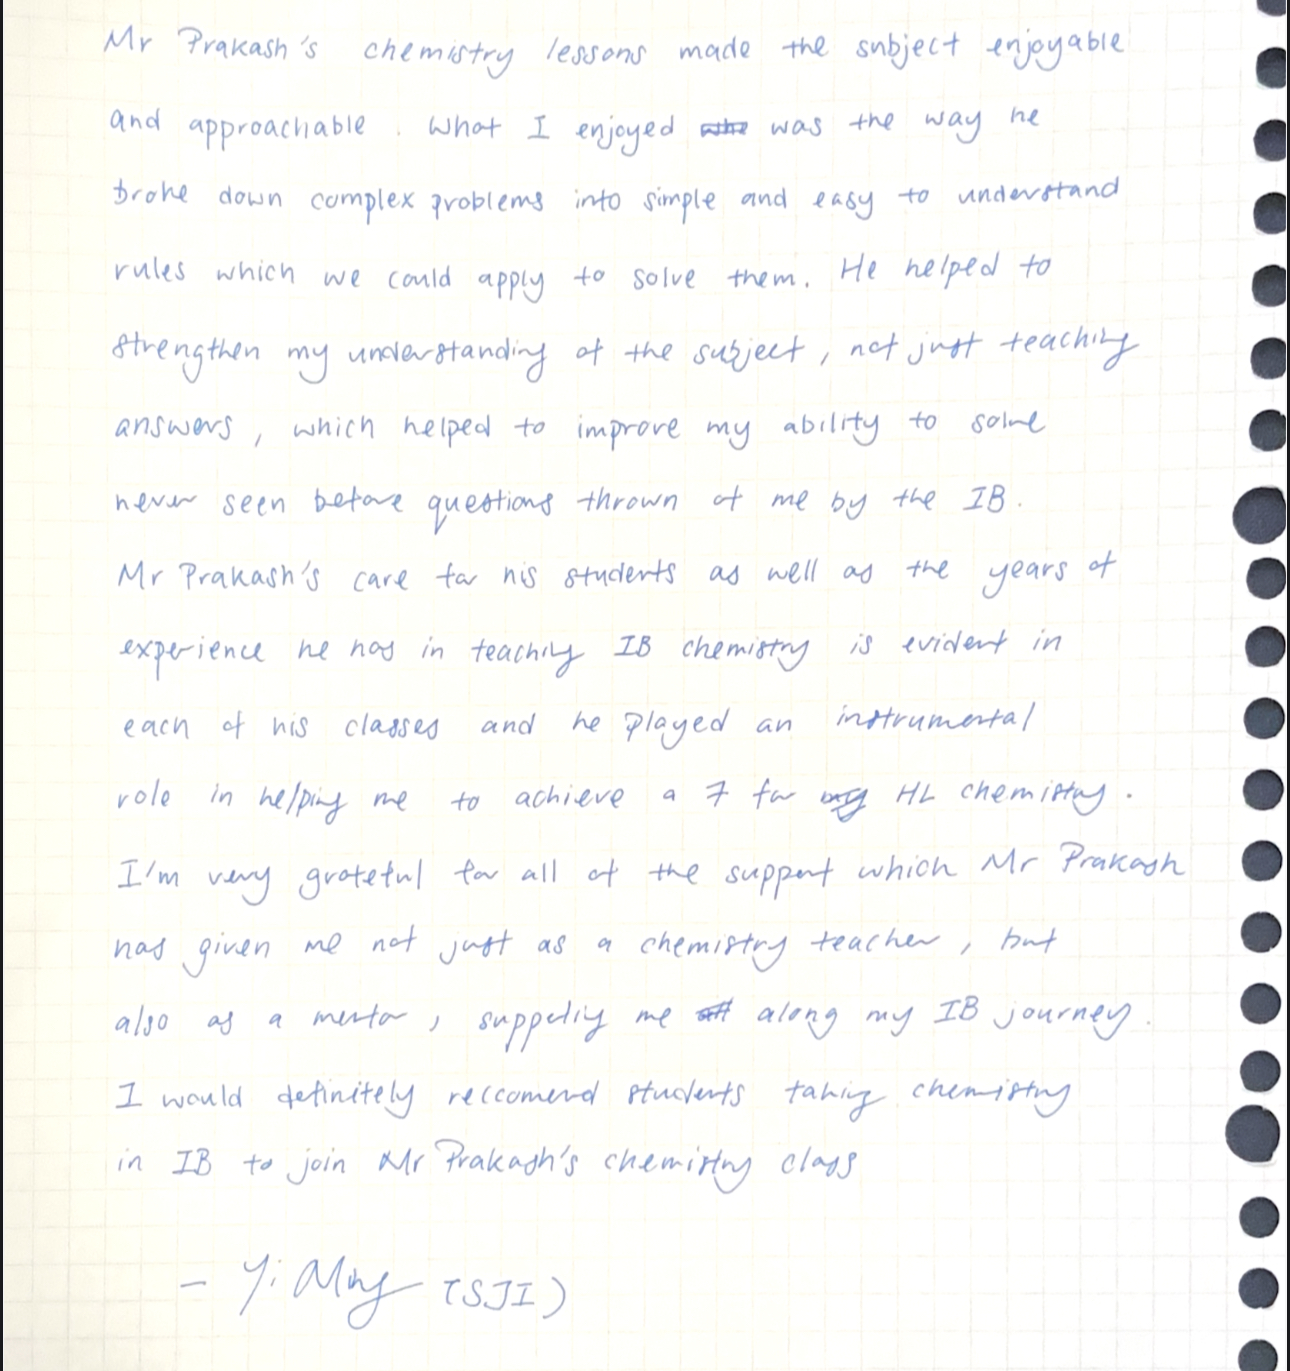 Mr Prakash's chemistry lessons made the subject enjoyable
and approachable. What I enjoyed was the way he
broke down complex problems into simple and easy to understand
rules which we could apply to solve them. He helped to
strengthen my understanding of the subject, not just teaching
answers, which helped to improve my ability to solve
never seen before questions thrown at me by the IB.
Mr Prakash's care for his students as well as the years of
experience he has in teaching IB chemistry is evident in
each of his classes and he played an instrumental
role in helping me to achieve a 7 for HL chemistry.
I'm very grateful for all of the support which Mr Prakash
has given me not just as a chemistry teacher, but
also as a mentor, supporting me along my IB journey.
I would definitely reccomend students taking chemistry
in IB to join Mr Prakash's chemistry class
- Yi Ming (SJI)